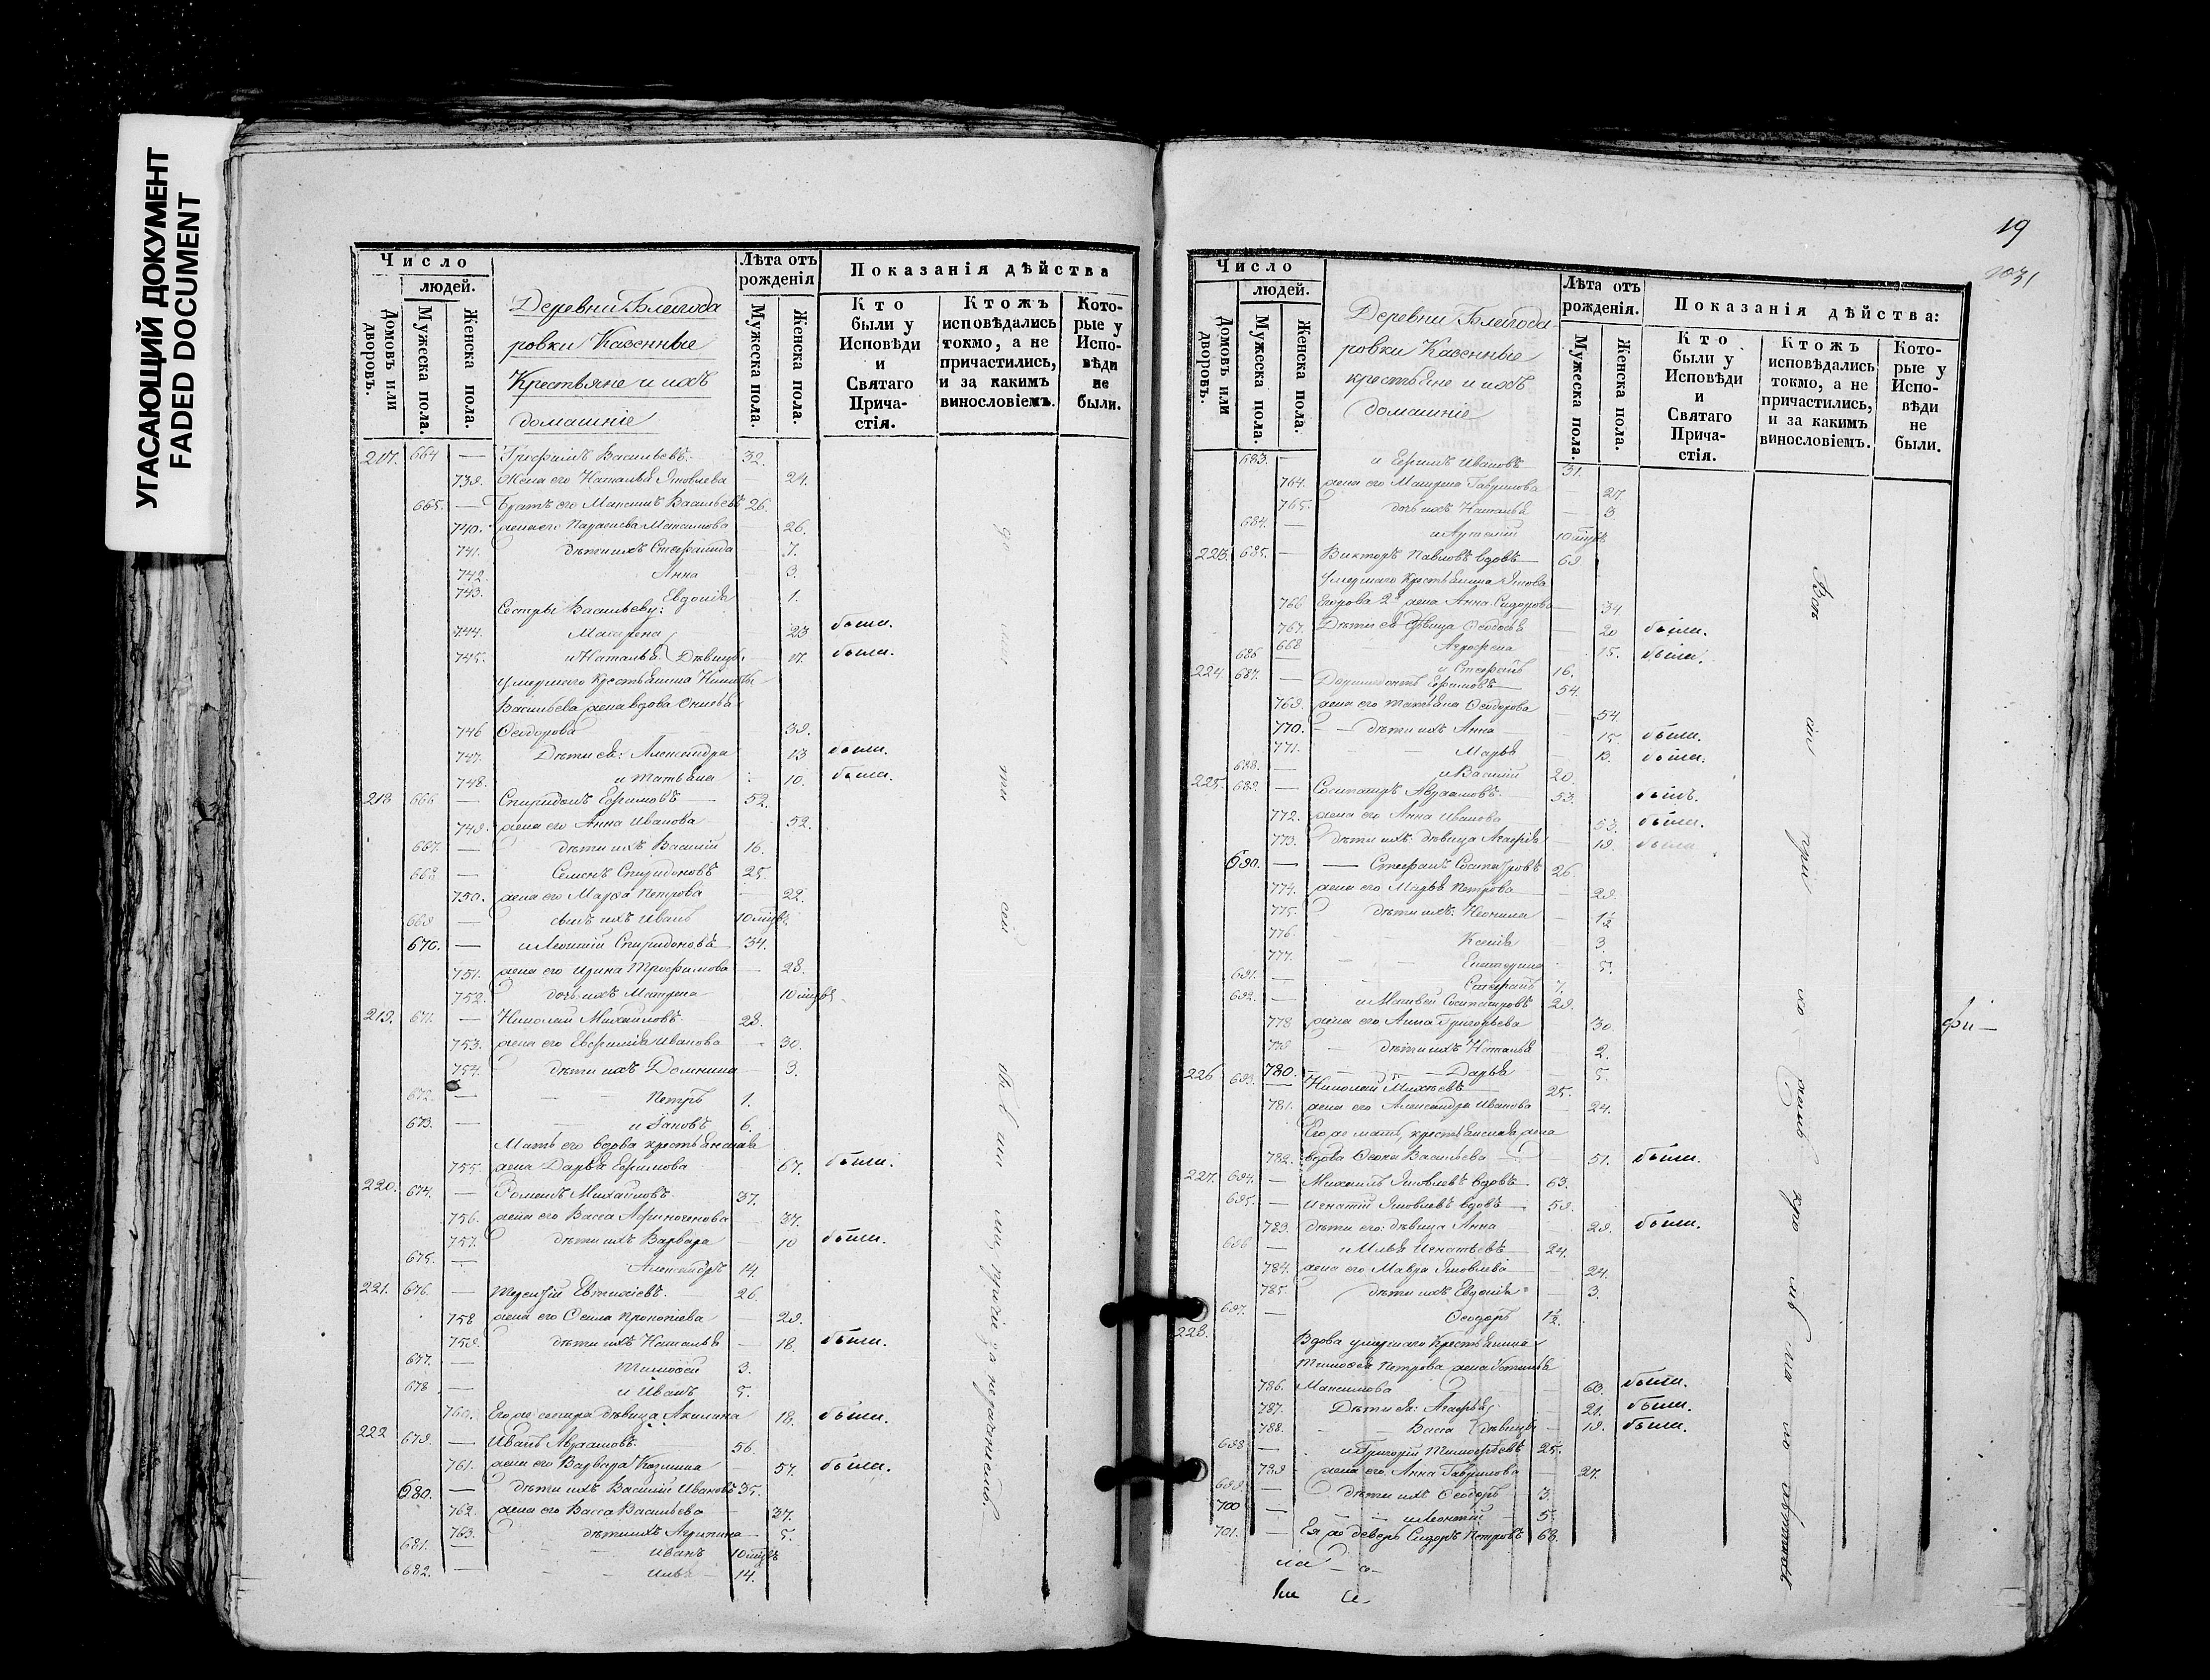 УГАСАЮЩИЙ ДОКУМЕНТ
FADED DOCUMENT
Число
людей.
Домовъ или дворовъ.
Мужеска пола.
Женска пола.
Деревни Благода
ровки Казенные
Крестьяне и ихъ
домашніе
Лѣта отъ рожденія
Мужеска пола.
Женска пола.
Показанія дѣйства
Кто были у Исповѣди и Святаго Прича-стія.
Ктожъ исповѣдались токмо, а не причастились, и за какимъ винословіемъ.
Кото-рые у Испо-вѣди не были.
217. 664 — Трофимъ Васильевъ 32.
739. Жена его Наталья Яковлева — 24.
665. — Братъ его Максимъ Васильевъ 26.
740. жена его Параскева Максимова — 26.
741. дѣти ихъ Стефанида 7.
742. Анна — 3.
743. Евдокія 1.
Сестры Васильеву:
744. Матрена 23 были.
745. и Наталья Дѣвицы 17. были.
умершаго Крестьянина Никиты
Васильева жена вдова
746 Ѳеодорова 39.
747. Дѣти ея: Александра 13 были.
748. и Татьяна 10. были.
218 666 — Спиридонъ Ефимовъ — 52.
749. жена его Анна Иванова 52.
667. — дѣти ихъ Василій 16.
668 — Семенъ Спиридоновъ 25.
750. жена его Марѳа Петрова — 22.
669 — сынъ ихъ Иванъ 10 мцвъ
670. — и Леонтій Спиридоновъ 34.
751. жена его Ирина Трофимова — 28.
752. дочь ихъ Матрена 10 мцвъ
219. 671. — Николай Михайловъ 28.
753. жена его Евфимія Иванова — 30.
754. дѣти ихъ Домнина — 3.
672. — Петръ 1.
673. — и Іаковъ 6.
Мать его вдова крестьянская
755. жена Дарья Ефимова 67. были.
220. 674. — Романъ Михайловъ 37.
756. жена его Васса Афиногенова 37.
757. дѣти ихъ Варвара — 10 были.
675. — Александръ 14.
221. 676. — Терентій Евтихіевъ. 26.
758 жена его Прокопіева — 29.
759. дѣти ихъ Наталья — 18. были.
677. — Тимоѳей 3.
678 — и Иванъ 5.
760. Его же сестра дѣвица Акилина 18. были.
222 679. — Иванъ Авраамовъ. 56.
761. жена его Варвара Козмина 57. были.
680. — дѣти ихъ Василій Ивановъ 35.
762. жена его Васса Васильева 37.
763. дѣти ихъ Агрипина 5.
681. — Иванъ 10 мцвъ
682. — Илья 14.
19
1031
Число
людей.
Домовъ или дворовъ.
Мужеска пола.
Женска пола.
Деревни Благода-
ровки Казенные
крестьяне и ихъ
домашніе
Лѣта отъ рожденія.
Мужеска пола.
Женска пола.
Показанія дѣйства:
Кто были у Исповѣди и Святаго Прича-стія.
Ктожъ исповѣдались токмо, а не причастились, и за какимъ винословіемъ.
Кото-рые у Испо-вѣди не были.
683. — и Ефимъ Ивановъ 31.
764. жена его Матрена Гаврилова — 27.
765. дочь ихъ Наталья — 3
684. — 10 мцвъ
223. 685. — Викторъ Павловъ вдовъ — 69.
умершаго Крестьянина Якова
766 Егорова 2я жена Анна Сидорова 34
767. Дѣти ея дѣвица Ѳеодосья 20 были.
668 Агрофена 15. были.
686 и Стефанъ 16.
224 687. — Ефимовъ 54.
769. жена его Татьяна Ѳеодорова 54.
770. — дѣти ихъ Анна 15. были.
771. Марья 13. были.
688. — и Василій 20.
225. 689. — Сосипатръ Авраамовъ 53. былъ.
772. жена его Анна Иванова 53. были.
773. дѣти ихъ: дѣвица Агафія 19. была
690. — Стефанъ Сосипатровъ 26.
774. жена его Марья Петрова 29.
775. дѣти ихъ: Неонила 1½
776. Ксенія 3
777. Екатерина 5.
691. — Стефанъ 7.
692. — и Матвей Сосипатровъ 29.
778 жена его Анна Григорьева 30.
779 дѣти ихъ Наталья 2.
780. Дарья 5.
226 693. — Николай Михѣевъ 25.
781. жена его Александра Иванова 24.
Его же мать, крестьянская жена
782. вдова Ѳекла Васильева 51. были.
227. 694. — Михаилъ Яковлевъ вдовъ 63.
695. — Игнатій Яковлевъ вдовъ — 59.
783. дѣти его: дѣвица Анна — 29. были.
696 — и Илья Игнатьевъ 24.
784. жена его Мавра Яковлева 24.
785. дѣти ихъ Евдокія — 3.
697. — Ѳеодоръ 1½.
228. Вдова умершаго Крестьянина
Тимоѳея Петрова жена Устинья
786. Максимова 60. были.
787. Дѣти ея: Агафья 21. были.
788. Васса дѣвицы 19. были.
698 — и Григорій Тимоѳѣевъ 25.
789 жена его Анна Гаврилова 27.
699. — дѣти ихъ Ѳеодоръ 3.
700 — и Леонтій 5.
701. — Ея же деверь Сидоръ Петровъ 68.